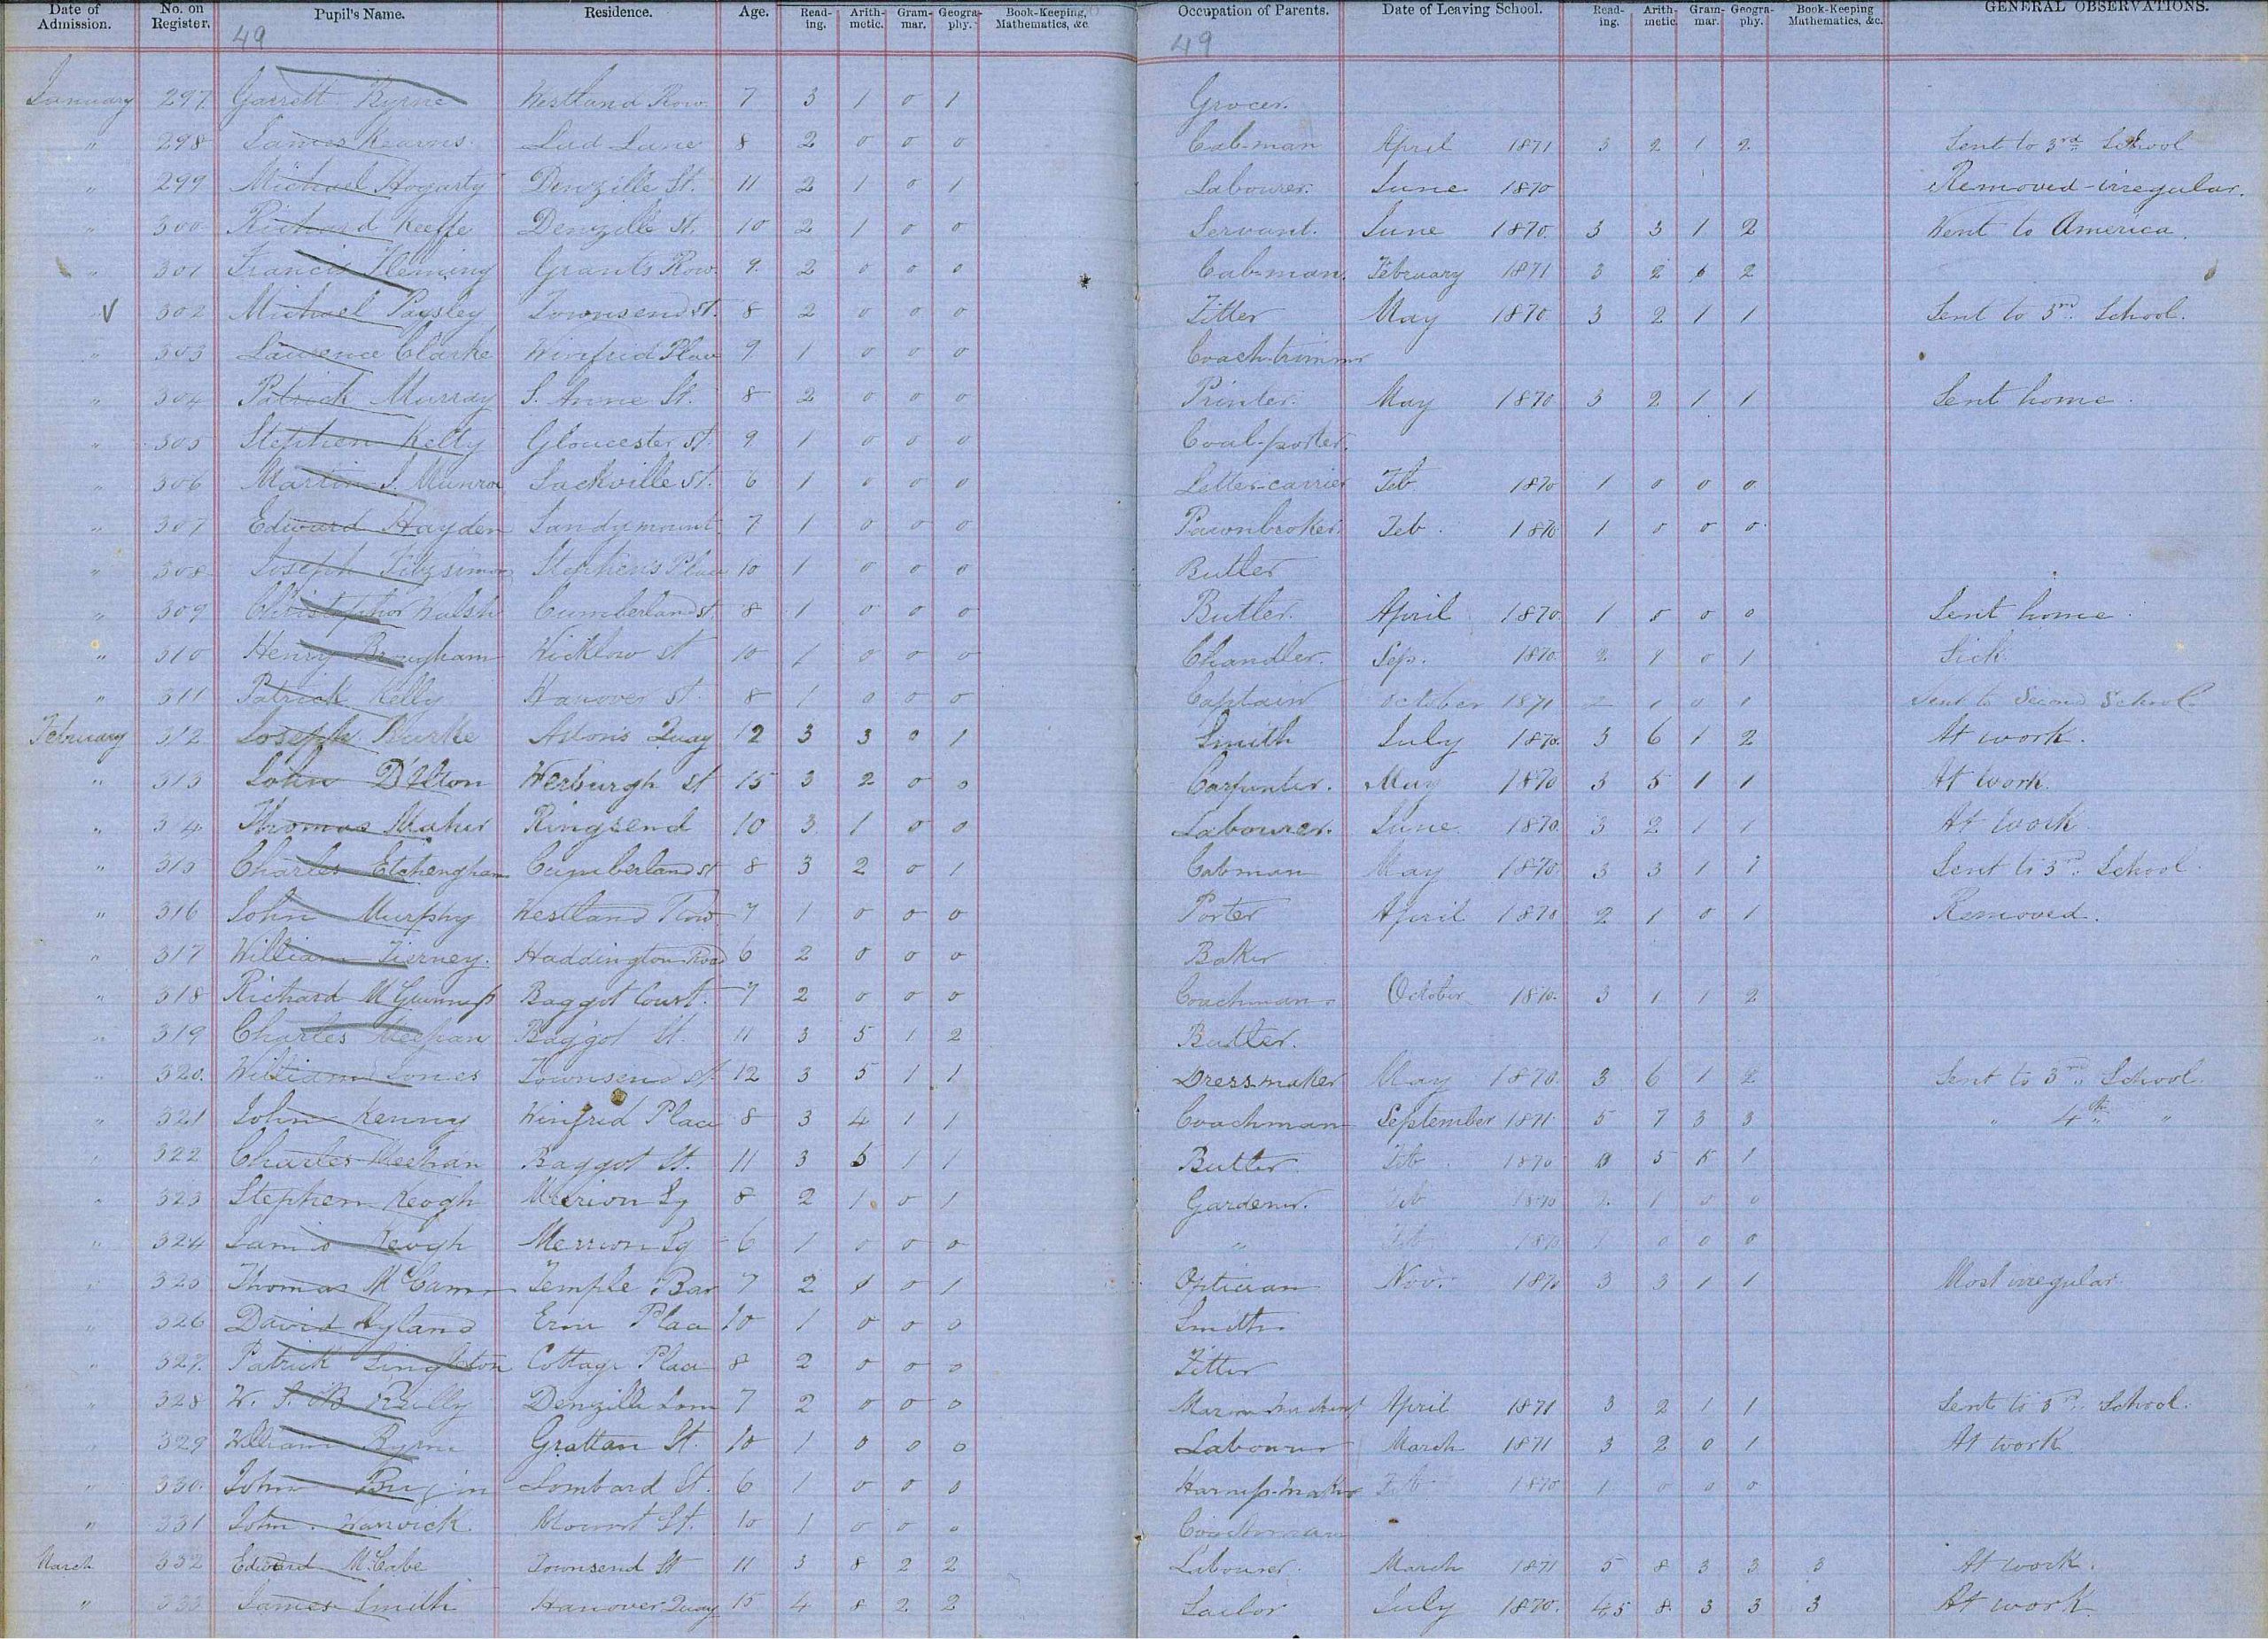 Date of Admission. No. on Register. Pupil's Name. Residence. Age. Read-ing. Arith-metic. Gram-mar. Geogra-phy. Book-Keeping, Mathematics, &c. Occupation of Parents. Date of Leaving School. Read-ing. Arith-metic. Gram-mar. Geogra-phy. Book-Keeping Mathematics, &c. GENERAL OBSERVATIONS.
49 49
January 297 Garrett Byrne Westland Row 7 3 1 0 1 Grocer.
" 298 James Kearns Lad Lane 8 2 0 0 0 Cab-man April 1871 3 2 1 2 Sent to 3rd School
" 299 Michael Hogarty Denzille St. 11 2 1 0 1 Labourer. June 1870 Removed-irregular.
" 300 Richard Keeffe Denzille St. 10 2 1 0 0 Servant. June 1870. 3 3 1 2 Went to America.
" 301 Francis Fleming Grants Row. 9. 2 0 0 0 Cab-man. February 1871 3 2 1 2
" V 302 Michael Paysley Townsend St. 8 2 0 0 0 Fitter May 1870. 3 2 1 1 Sent to 3rd School.
" 303 Laurence Clarke Winfrid Place 9 1 0 0 0 Coach-trimmer
" 304 Patrick Murray S. Anne St. 8 2 0 0 0 Printer. May 1870 3 2 1 1 Sent home.
" 305 Stephen Kelly Gloucester St. 9 1 0 0 0 Coal-porter.
" 306 Martin J. Munroe Sackville St. 6 1 0 0 0 Letter-carrier Feb 1870 1 0 0 0
" 307 Edward Hayden Sandymount 7 1 0 0 0 Pawnbroker. Feb. 1870 1 0 0 0
" 308 Joseph Fitzsimon Stephen's Place 10 1 0 0 0 Butler
" 309 Christopher Walsh Cumberland st. 8 1 0 0 0 Butler. April 1870. 1 0 0 0 Sent home.
" 310 Henry Brougham Wicklow st 10 1 0 0 0 Chandler. Sep. 1870. 2 1 0 1 Sick.
" 311 Patrick Kelly Hanover St. 8 1 0 0 0 Captain October 1871 2 1 0 1 Sent to Second School.
February 312 Joseph Burke Aston's Quay 12 3 3 0 1 Smith July 1870. 3 6 1 2 At work.
" 313 John D'Alton Werburgh st 15 3 2 0 0 Carpenter. May 1870 3 5 1 1 At work.
" 314 Thomas Maher Ringsend 10 3 1 0 0 Labourer. June 1870. 3 2 1 1 At work
" 315 Charles Etchengham Cumberland st 8 3 2 0 1 Cabman May 1870. 3 3 1 1 Sent to 3rd School.
" 316 John Murphy Westland Row 7 1 0 0 0 Porter April 1870 2 1 0 1 Removed.
" 317 William Tierney. Haddington Road 6 2 0 0 0 Baker
" 318 Richard McGuinness Baggot Court. 7 2 0 0 0 Coachman. October 1870. 3 1 1 2
" 319 Charles Meehan Baggot St. 11 3 5 1 2 Butler.
" 320. William Jones Townsend St. 12 3 5 1 1 Dressmaker May 1870. 3 6 1 2 Sent to 3rd School.
" 321 John Kenny Winfrid Place 8 3 4 1 1 Coachman September 1871 5 7 3 3 " 4th "
" 322 Charles Meehan Baggot St. 11 3 5 1 1 Butler Feb. 1870 5 1
" 323 Stephen Keogh Merrion Sq 8 2 1 0 1 Gardener. Feb 1870 2. 1 0 0
" 324 James Keogh Merrion Sq 6 1 0 0 0 " Feb 1870 1 0 0 0
" 325 Thomas McCann Temple Bar 7 2 1 0 1 Optician Nov. 1870 3 3 1 1 Most irregular.
" 326 David Hyland Erne Place 10 1 0 0 0 Smith
" 327. Patrick Singleton Cottage Place 8 2 0 0 0 Fitter
" 328 W. J. B. Reilly Denzille Lane 7 2 0 0 0 April 1871 3 2 1 1 Sent to 3rd School.
" 329 William Byrne Grattan St. 10 1 0 0 0 Labourer March 1871 3 2 0 1 At work
" 330. John Lombard St. 6 1 0 0 0 Harness-maker Feb 1870 1 0 0 0
" 331 John Warwick. Mount St. 10 1 0 0 0 Coachman
March 332 Edward McCabe Townsend St 11 3 8 2 2 Labourer. March 1871 5 8 3 3 3 At work.
" 333 James Smith Hanover Quay 15 4 8 2 2 Sailor July 1870. 4.5 8 3 3 3 At work